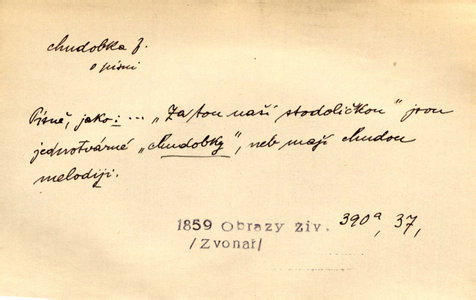 chudobka f.
o písni
Písně, jako: ... „Za tou naší stodoličkou" jsou
jednotvárné „chudobky", neb mají chudou
melodiji.
1859 Obrazy živ. 390a, 37,
/Zvonař/